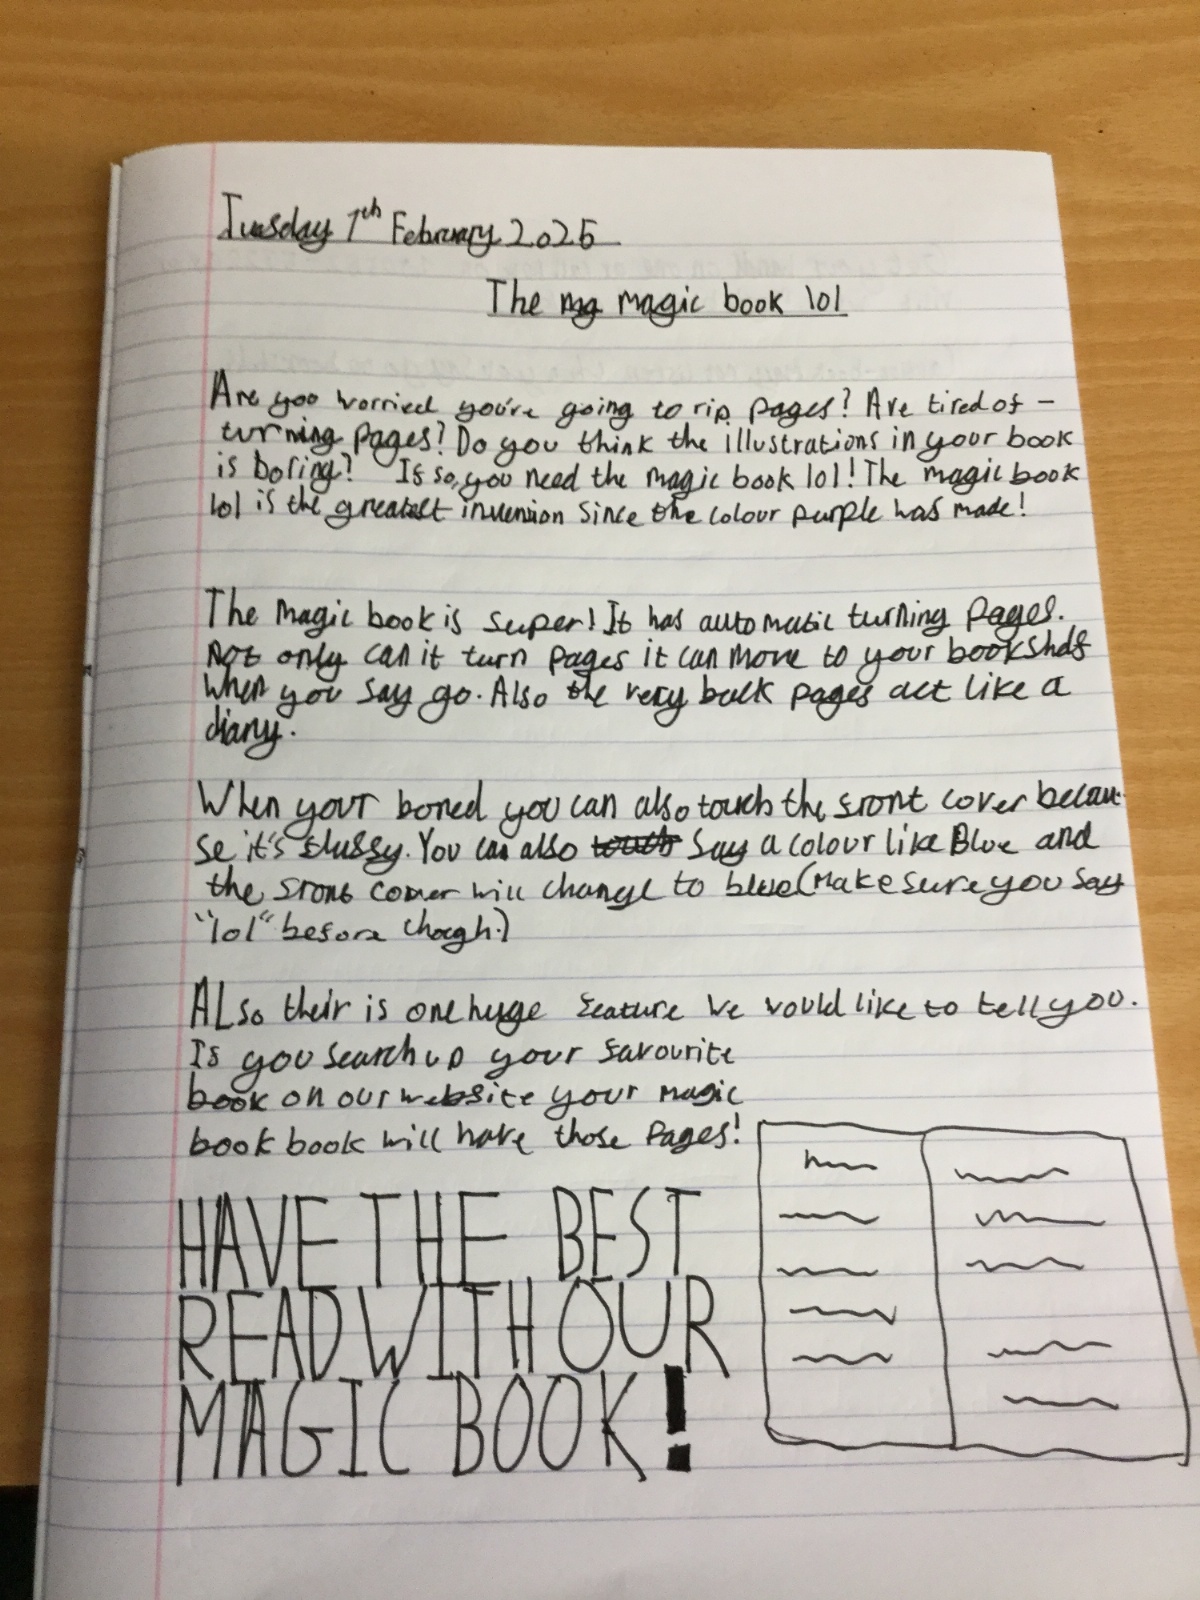 Tuesday 7th February 2025
The magic book lol
Are you worried you're going to rip pages? Are tired of -
turning pages? Do you think the illustrations in your book
is boring? If so, you need the magic book lol! The magic book
lol is the greatest invension since the colour purple was made!
The magic book is super! It has automatic turning pages.
Not only can it turn pages it can move to your bookshelf
when you say go. Also the very back pages act like a
diary.
When your bored you can also touch the front cover becau-
se it's fluffy. You can also say a colour like Blue and
the front cover will change to blue (Make sure you say
"lol" before though.)
ALso their is one huge feature we would like to tell you.
If you search up your favourite
book on our website your magic
book book will have those pages!
HAVE THE BEST
READ WITH OUR
MAGIC BOOK!